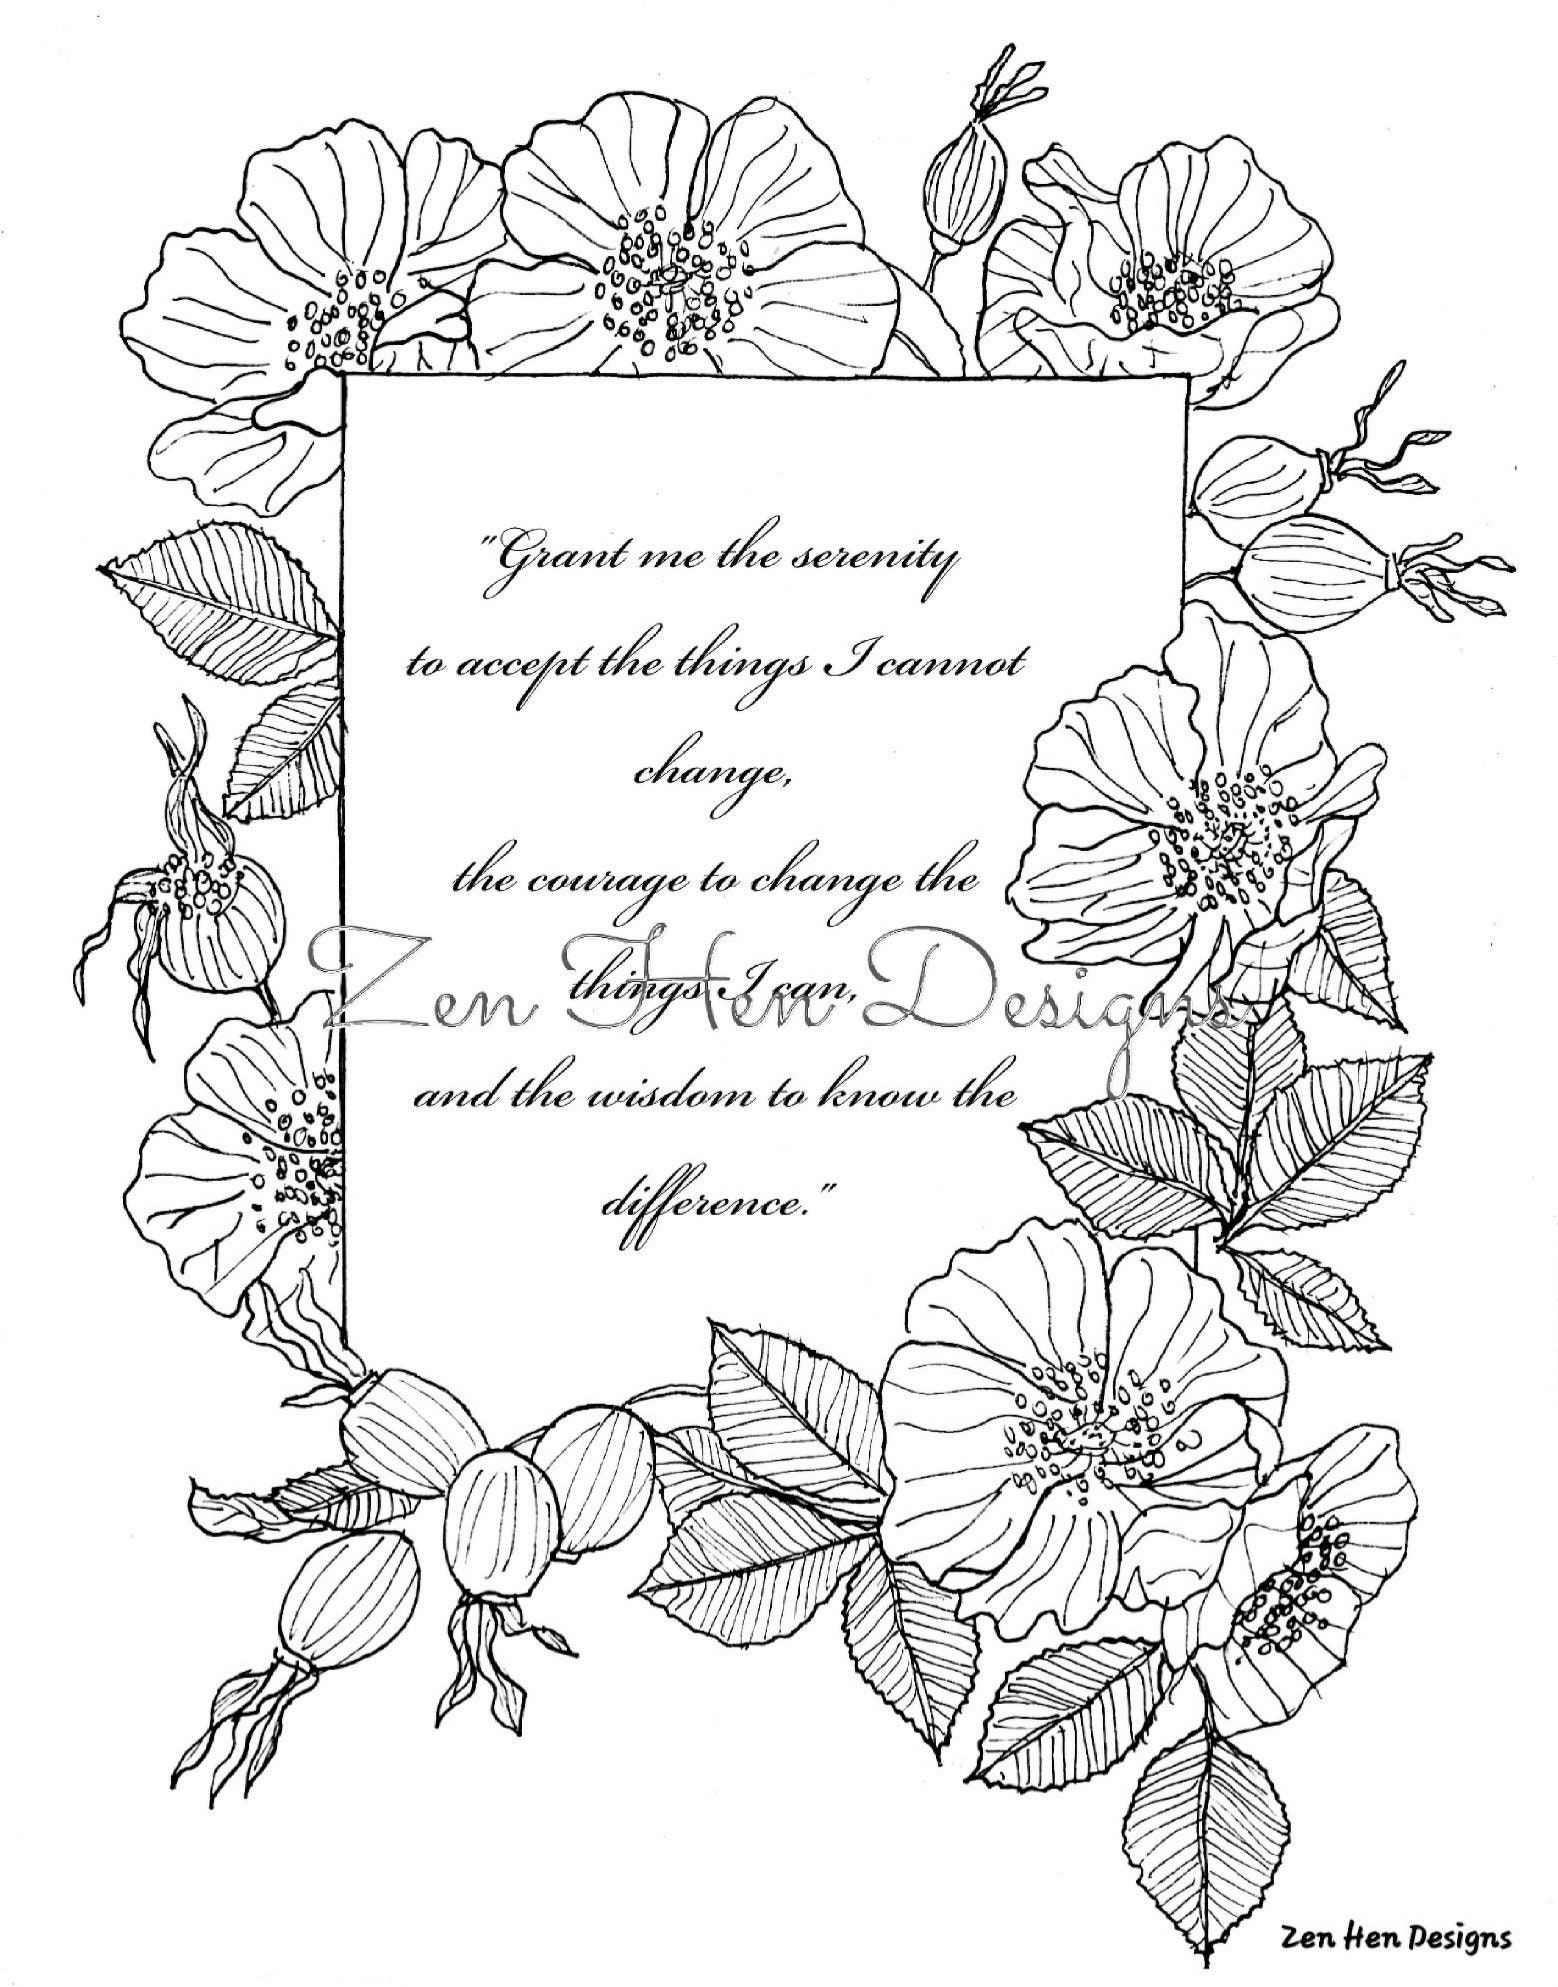 "Grant me the serenity
to accept the things I cannot
change,
the courage to change the
things I can,
Zen Hen Designs
and the wisdom to know the
difference."
Zen Hen Designs